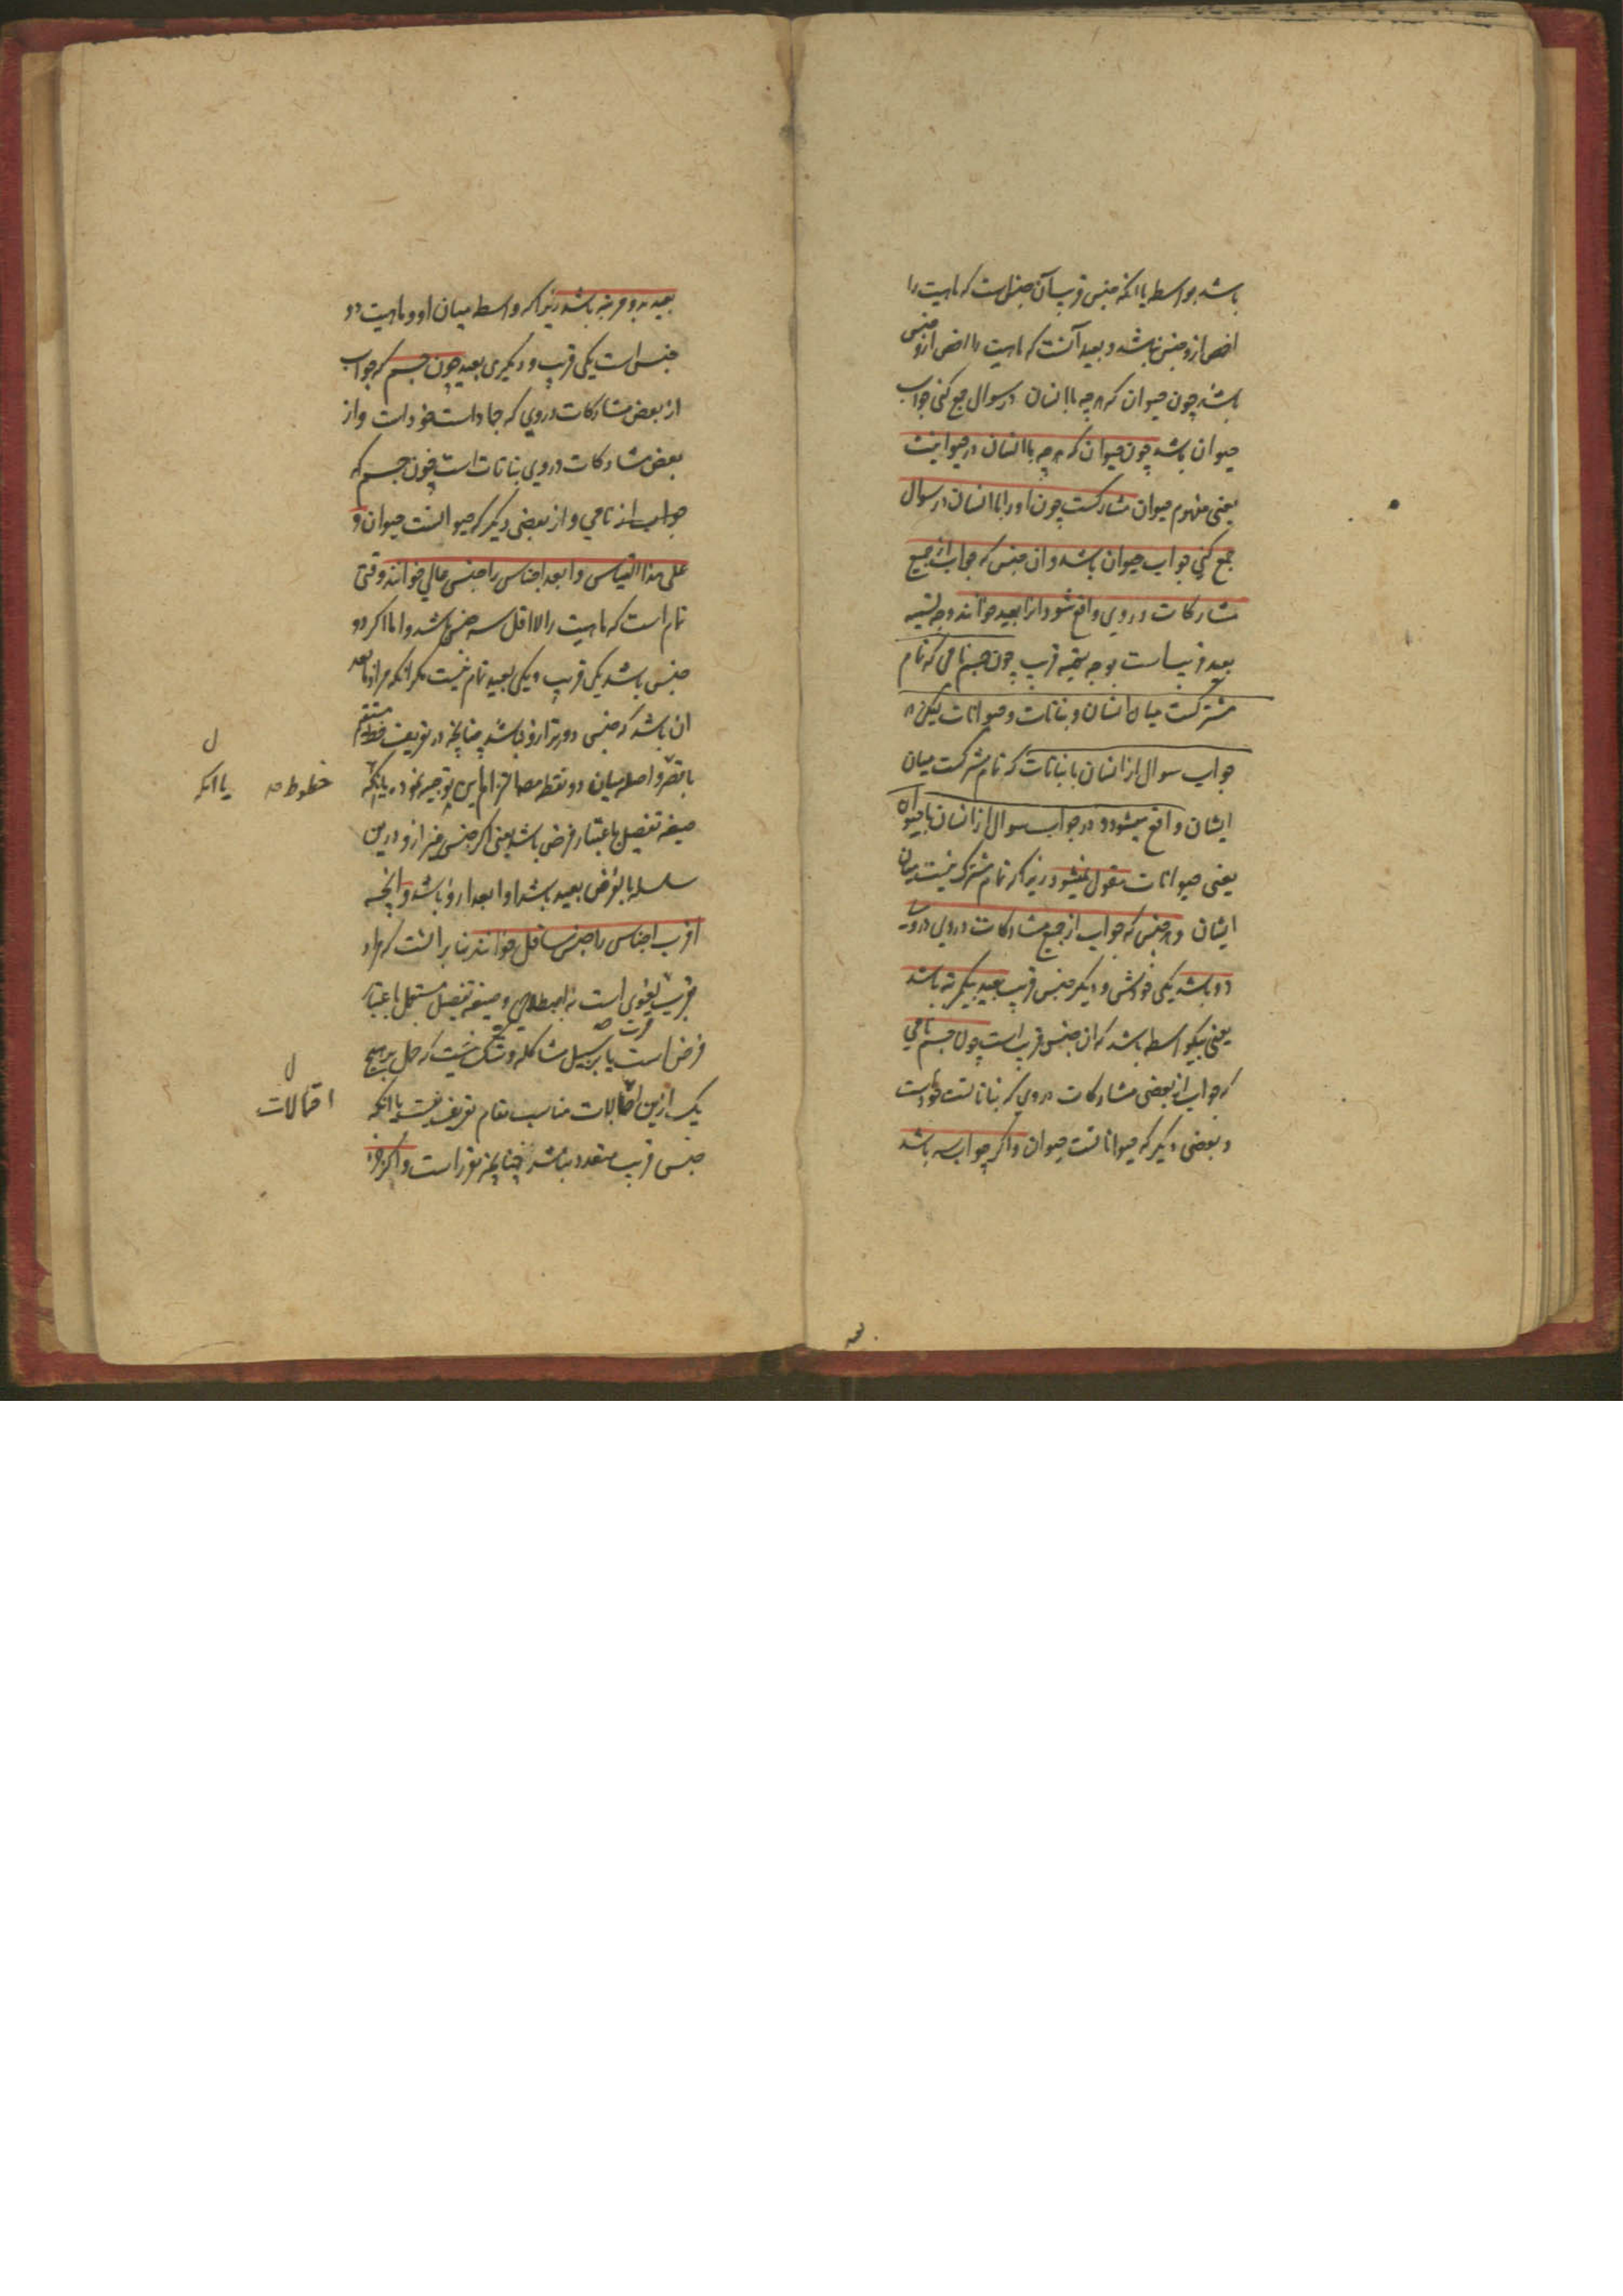 باشد بواسطه یا انکه جنس قریب آن جنس است که ماهیت را
اخص ازو جنس نباشد و بعید آنست که ماهیت را اخص ازو جنس
باشد چون حیوان که هر چه با انسان در سوال جمع کنی جواب
حیوان باشد چون حیوان که هر چه با انسان در حیوانیت
یعنی مفهوم حیوان مشارکست چون او را با انسان در سوال
جمع کنی جواب حیوان باشد وان جنس که جواب از جمیع
مشارکات در وی واقع نشود انرا بعید خوانند وجه تسمیه
بعید قریب است بوجه تسمیه قریب چون جسم نامی که تمام
مشترکست میان انسان و نباتات و حیوانات لیکن در
جواب سوال از انسان با نباتات که تمام مشترکست میان
ایشان واقع میشود و در جواب سوال از انسان با حیوان
یعنی حیوانات مقول نمیشود زیرا که تمام مشترک نیست میان
ایشان و هر جنس که جواب از جمیع مشارکات در وی
دو باشد یکی خودش و دیگر جنس قریب بعید بیکمرتبه باشد
یعنی بیکواسطه باشد که ان جنس قریب است چون جسم نامی
که جواب از بعضی مشارکات در وی که نباتاتست خودست
و بعضی دیگر که حیواناتست حیوان و اگر جواب سه باشد
بعید بدو مرتبه باشد زیرا که واسطه میان او و ماهیت دو
جنس است یکی قریب و دیگری بعید چون جسم که جواب
از بعض مشارکات در وی که جمادات خودست و از
بعض مشارکات در وی نباتات است چون جسم که
جواب از نامی و از بعضی دیگر که حیوانست حیوان و
علی هذا القیاس و ابعد اجناس را جنس عالی خوانند وقتی
تمام است که ماهیت را لااقل سه جنس باشد و اما اگر دو
جنس باشد یکی قریب و یکی بعید تمام نیست مگر انکه مراد بابعد
ان باشد که جنسی دورتر ازو نباشد چنانچه در تعریف خط مستقیم
باقصر واصله میان دو نقطه این توجیه نموده یا انکه
خطوط صـ یا انکه ل
صیغه تفضیل باعتبار فرض باشد یعنی اگر جنسی غیر ازو درین
سلسله بالفرض بعید باشد او ابعد ازو باشد و انچه
اقرب اجناس را جنس سافل خوانند بنا بر انست که مراد
بقریب لغوی است نه اصطلاحی و صیغه تفضیل مستعمل باعتبار
فرض است یا بر سبیل مشاکله و شک نیست که حمل بر هیچ
یک ازین احتمالات مناسب مقام تعریف نیست یا انکه
احتمالات ل
جنس قریب متعدد نباشد چنانچه مقرر است و اگر